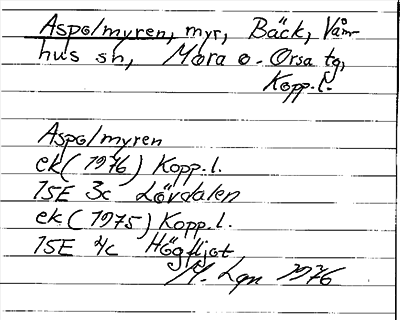 Aspolmyren, myr, Bäck, Våm-
hus sn, Mora o. Orsa tg,
Kopp.l.
Aspolmyren
ek (1976) Kopp.l.
15E 3c Lövdalen
ek (1975) Kopp.l.
15E 4c Högfljot
M. Lgn 1976